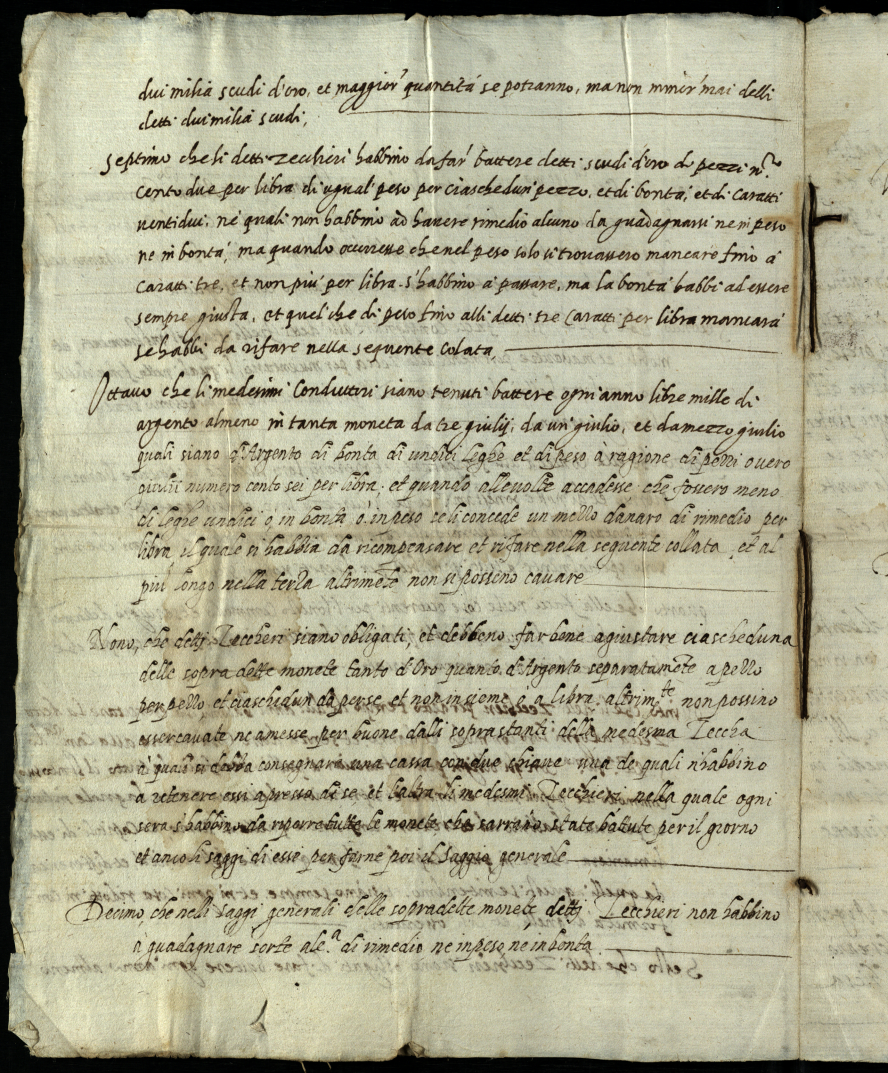 dui milia scudi d'oro, et maggior' quantità se potranno, ma non minor' mai delli
detti dui milia scudi,
Septimo che li detti zecchieri habbino da far' battere detti scudi d'oro de pezzi n.ro
Cento due per libra di ugual' peso per ciaschedun' pezzo, et di bontà, et di Caratti
uentidui, ne quali non habbino ad hauere rimedio alcuno da guadagnarsi ne in peso
ne in bontà, ma quando occuresse che nel peso solo si trouassero mancare fino à
Caratti tre, et non più per libra s'habbino à passare, ma la bontà habbi ad essere
sempre giusta, et quel che di peso fino alli detti tre Caratti per libra mancarà
se habbi da rifare nella sequente Colata,
Ottauo che li medesimi Conduttori siano tenuti battere ogni anno libre mille di
argento almeno in tanta moneta da tre giulij, da un' giulio, et da mezzo giulio
quali siano d'Argento di bonta di undici leghe et di peso à ragione di pezzi ouero
giulii numero cento sei per libra, et quando alle uolte accadesse che fossero meno
di leghe undici ò in bonta ò in peso se li concede un mezzo danaro di rimedio per
libra il quale si habbia da ricompensare et rifare nella sequente collata, et al
piu longo nella terza altrimēte non si posseno cauare
Nono, che detti Zecchieri siano obligati, et debbeno far bone agiustare ciascheduna
delle sopra dette monete tanto d'Oro quanto d'Argento separatamēte a pezzo
per pezzo, et ciaschedun da perse, et non insieme, ò a libra, altrim.te non possino
esser cauate ne amesse per buone dalli soprastanti della medesma Zeccha
à quali si debba consegnare una cassa con due chiaue una de quali n'habbino
à retenere essi apresso di se et l'altra li medesmi Zecchieri nella quale ogni
sera s'habbino da riporre tutte le monete che sarrano state battute per il giorno
et anco li saggi di esse per farne poi il Saggio generale
Decimo che nelli Saggi generali delle sopradette monete, detti Zecchieri non habbino
à guadagnare sorte alc.a di rimedio ne in peso, ne in bonta